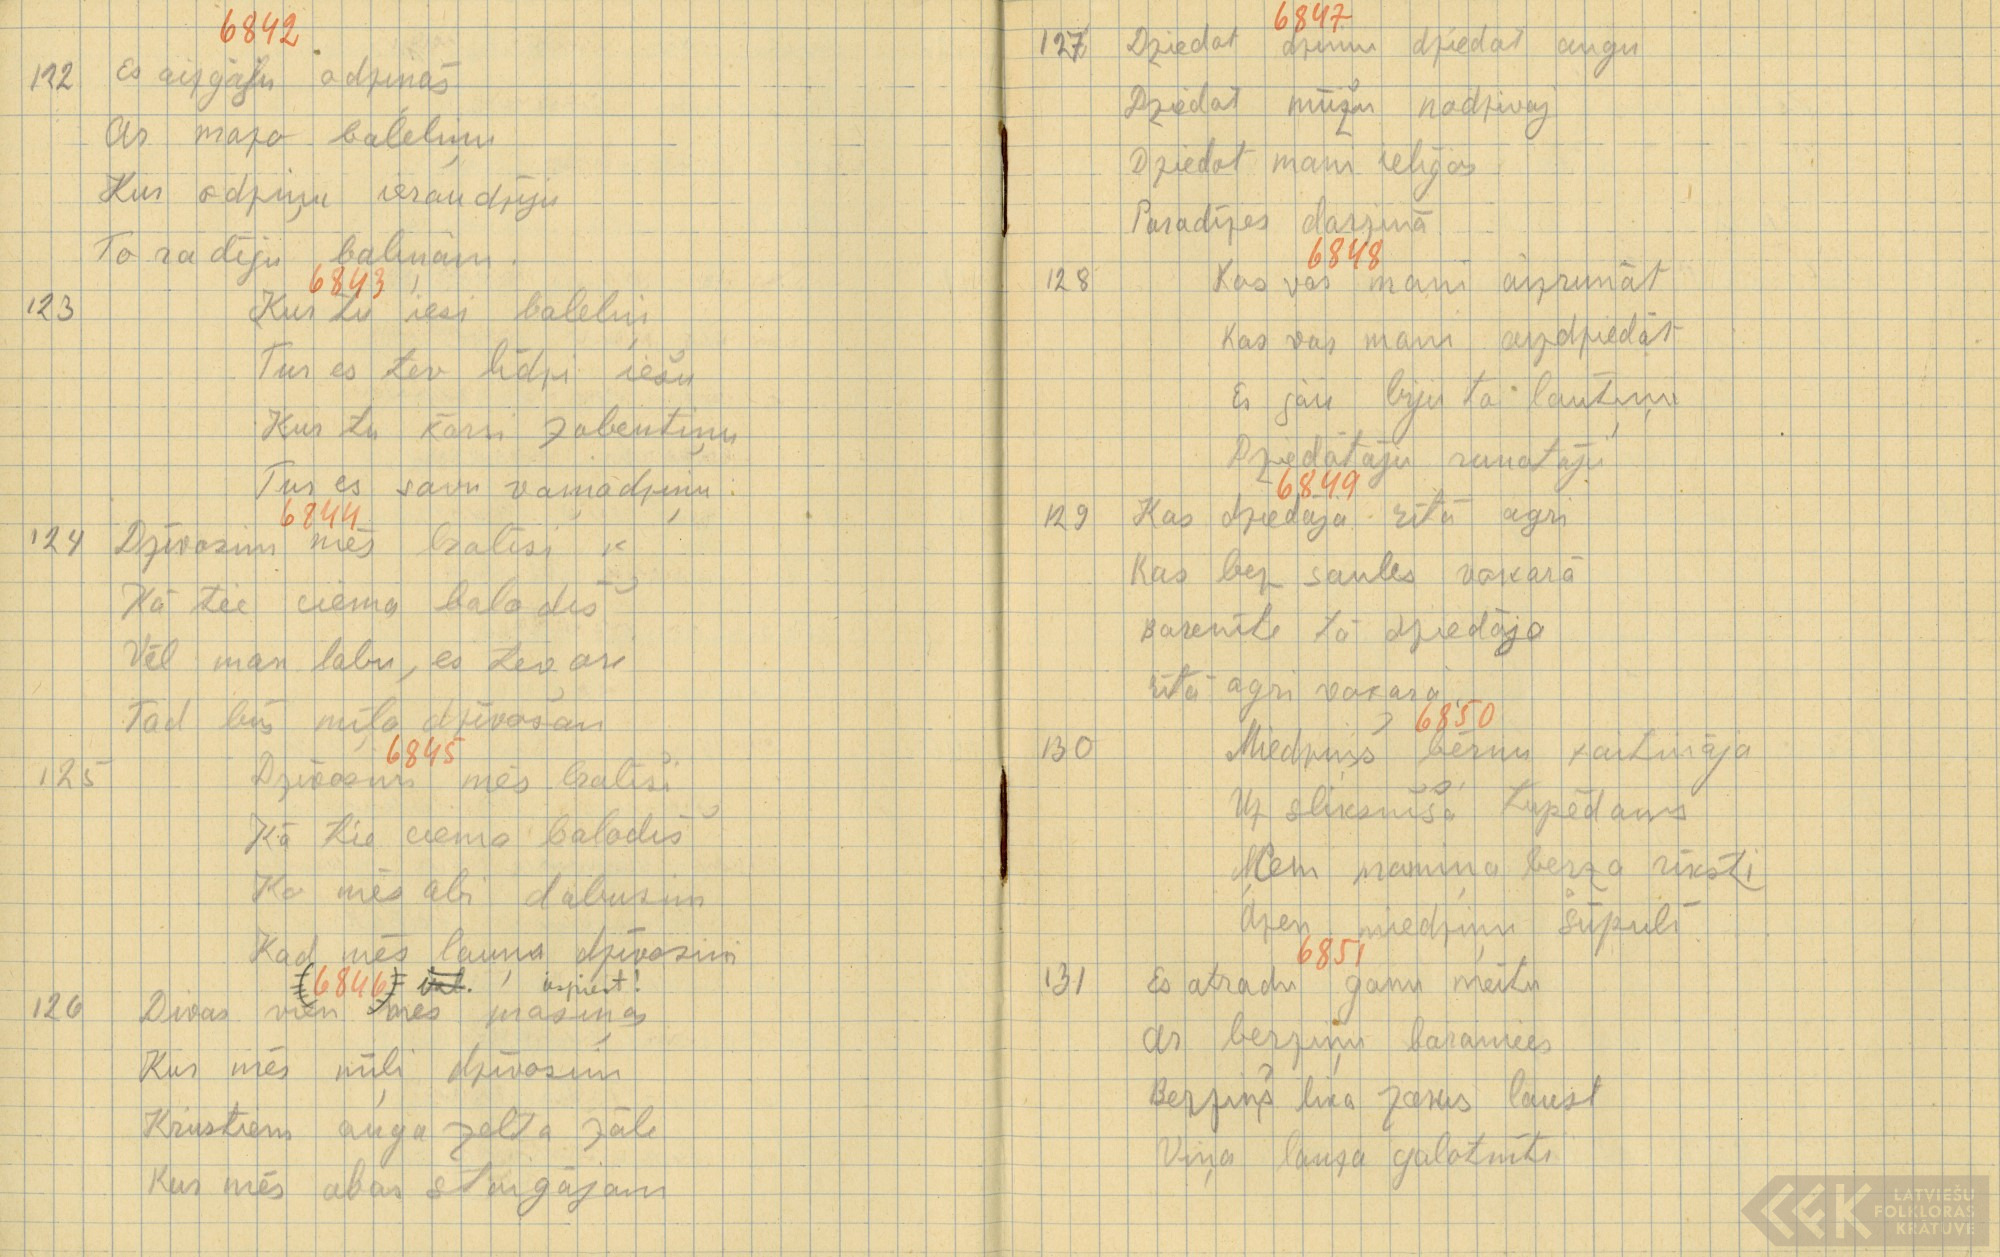 6842
122 Es aizgāju odziņas
Ar mazo bāleliņu
Kur odziņu ieraudzīju
To radīju baliņam.
6843
123 Kur tu iesi baleliņ
Tur es tev līdzi iešu
Kur tu kārsi zobentiņu
Tur es savu vaiņadziņu.
6844
124 Dzīvosim mēs bratiši
Kā tie ciema balodiš
Vēl man labu, es tev ari
Tad būs mīļa dzīvošan
6845
125 Dzīvosim mēs bratiši
Kā tie ciema balodiš
Ko mēs abi dabusim
Kad mēs launa dzīvosim
(6846) iespiest!
126 Divas vien mes masiņas
Kur mēs mīļi dzīvosim
Krustiem auga zelta zāle
Kur mēs abas staigājam
6847
127 Dziedot dzimu dziedot augu
Dziedot mūžu nodzivoj
Dziedot mani ieligos
Paradīzes darziņā
6848
128 Kas var mani aizrunāt
Kas var mani aizdziedāt
Es jau biju to lautiņu
Dziedātāju runātāju
6849
129 Kas dziedāja rītā agri
Kas bez saules vakarā
Barenīte tā dziedāja
Rītā agri vakarā
6850
130 Miedziņš bērnu kaitināja
Uz sliksnīša tupēdams
Ņem mamiņa berza rīksti
Dzen miedziņu šūpulī
6851
131 Es atradu ganu meitu
Ar berziņu baramies
Berziņš lika zarus laust
Viņa lauza galotnīti
LATVIEŠU
FOLKLORAS
KRĀTUVE